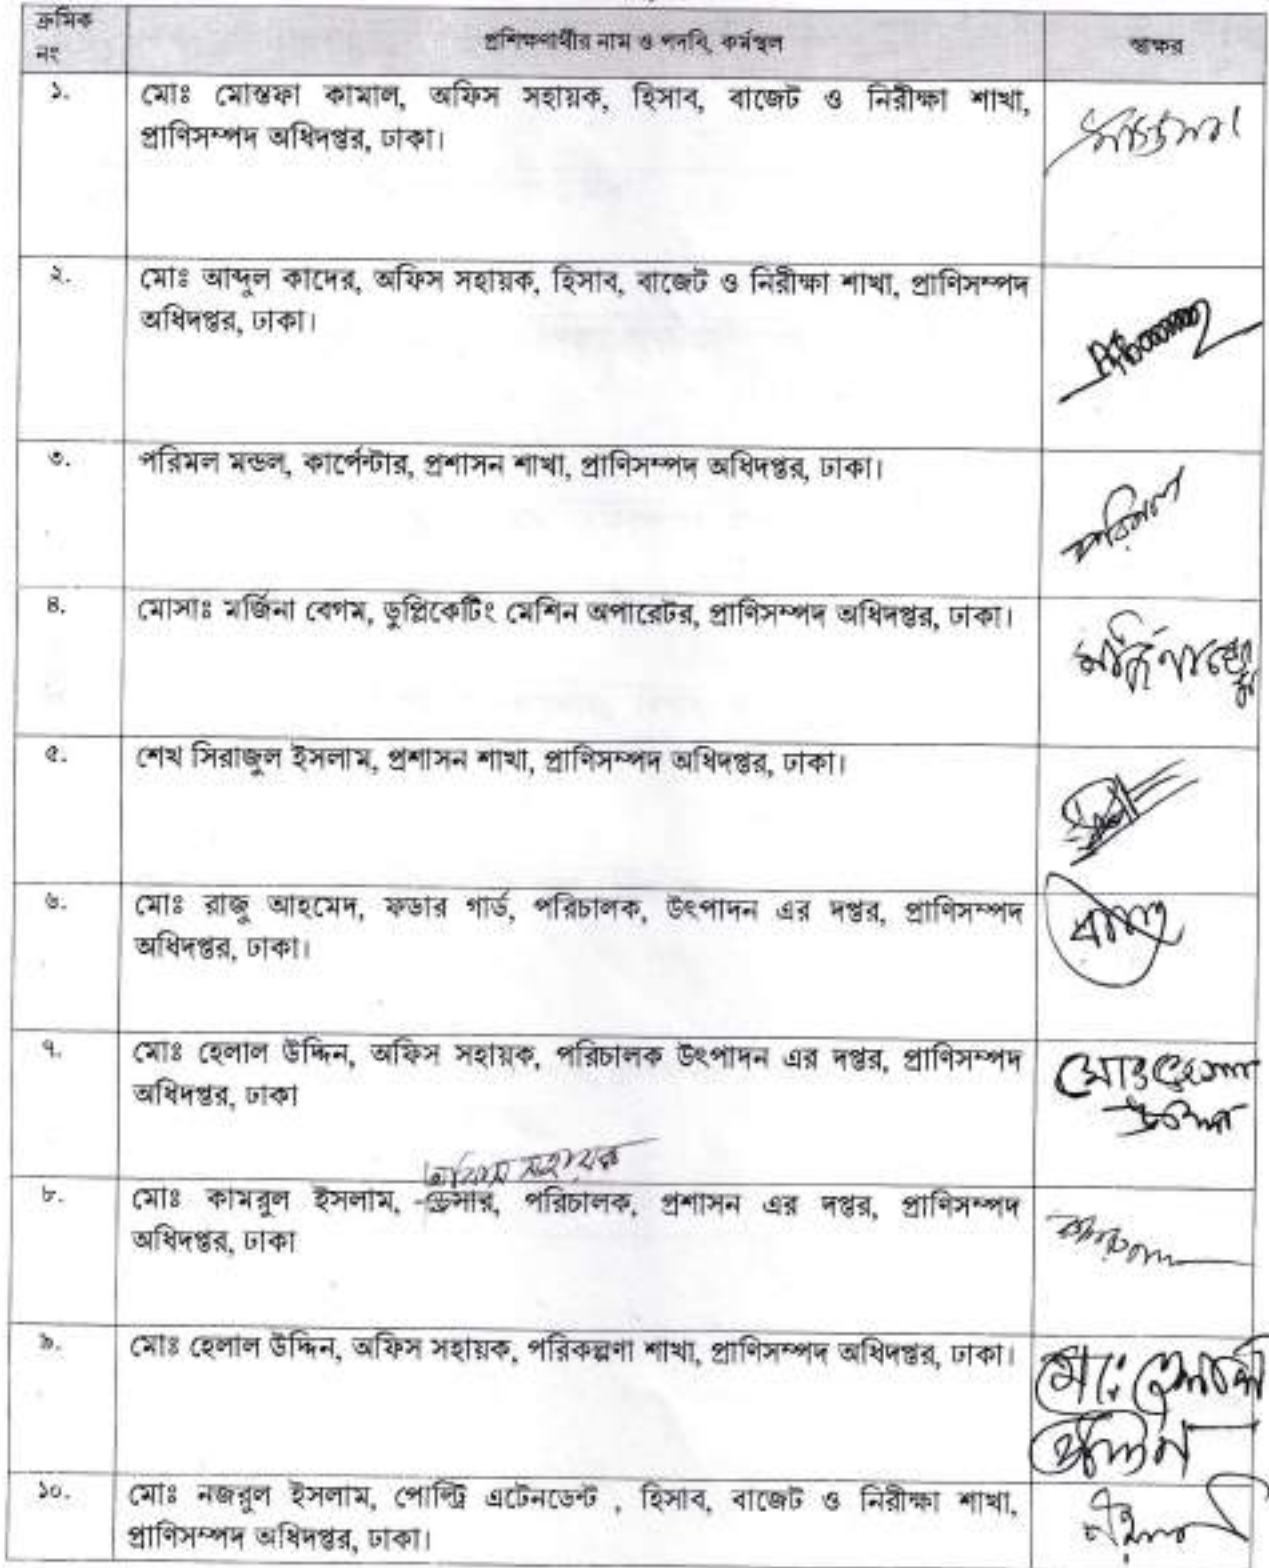 ক্রমিক নং প্রশিক্ষণার্থীর নাম ও পদবি, কর্মস্থল স্বাক্ষর
১. মোঃ মোস্তফা কামাল, অফিস সহায়ক, হিসাব, বাজেট ও নিরীক্ষা শাখা,
প্রাণিসম্পদ অধিদপ্তর, ঢাকা।
২. মোঃ আব্দুল কাদের, অফিস সহায়ক, হিসাব, বাজেট ও নিরীক্ষা শাখা, প্রাণিসম্পদ
অধিদপ্তর, ঢাকা।
৩. পরিমল মন্ডল, কার্পেন্টার, প্রশাসন শাখা, প্রাণিসম্পদ অধিদপ্তর, ঢাকা।
পরিমল
৪. মোসাঃ মর্জিনা বেগম, ডুপ্লিকেটিং মেশিন অপারেটর, প্রাণিসম্পদ অধিদপ্তর, ঢাকা।
৫. শেখ সিরাজুল ইসলাম, প্রশাসন শাখা, প্রাণিসম্পদ অধিদপ্তর, ঢাকা।
৬. মোঃ রাজু আহমেদ, ফডার গার্ড, পরিচালক, উৎপাদন এর দপ্তর, প্রাণিসম্পদ
অধিদপ্তর, ঢাকা।
৭. মোঃ হেলাল উদ্দিন, অফিস সহায়ক, পরিচালক উৎপাদন এর দপ্তর, প্রাণিসম্পদ
অধিদপ্তর, ঢাকা
অফিস সহায়ক
৮. মোঃ কামরুল ইসলাম, ড্রেসার, পরিচালক, প্রশাসন এর দপ্তর, প্রাণিসম্পদ
অধিদপ্তর, ঢাকা
৯. মোঃ হেলাল উদ্দিন, অফিস সহায়ক, পরিকল্পণা শাখা, প্রাণিসম্পদ অধিদপ্তর, ঢাকা।
১০. মোঃ নজরুল ইসলাম, পোল্ট্রি এটেনডেন্ট , হিসাব, বাজেট ও নিরীক্ষা শাখা,
প্রাণিসম্পদ অধিদপ্তর, ঢাকা।